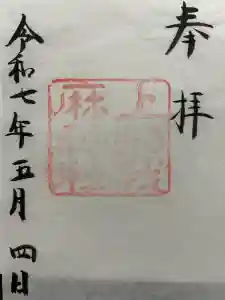 奉拝
令和七年五月四日